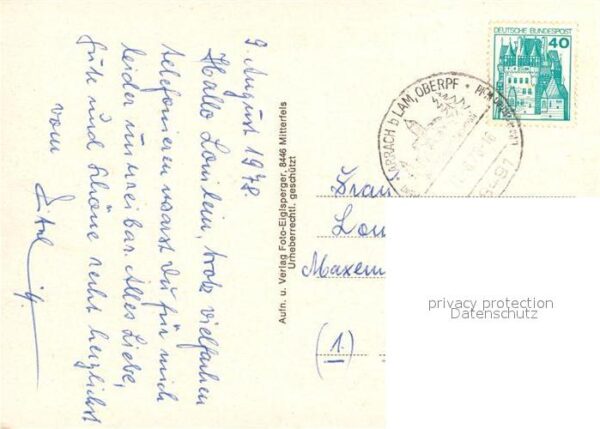 9. August 1978.
Hallo Lonilein, trotz vielfachen
telefonieren warst Du für mich
leider unerreibar. Alles Liebe,
Gute und Schöne recht herzlichst
vom
Aufn. u. Verlag Foto-Eiglsperger, 8446 Mitterfels
Urheberrechtl. geschützt
DEUTSCHE BUNDESPOST
40
LAM, OBERPF
Frau
Lon
Maxem
(1)
privacy protection
Datenschutz